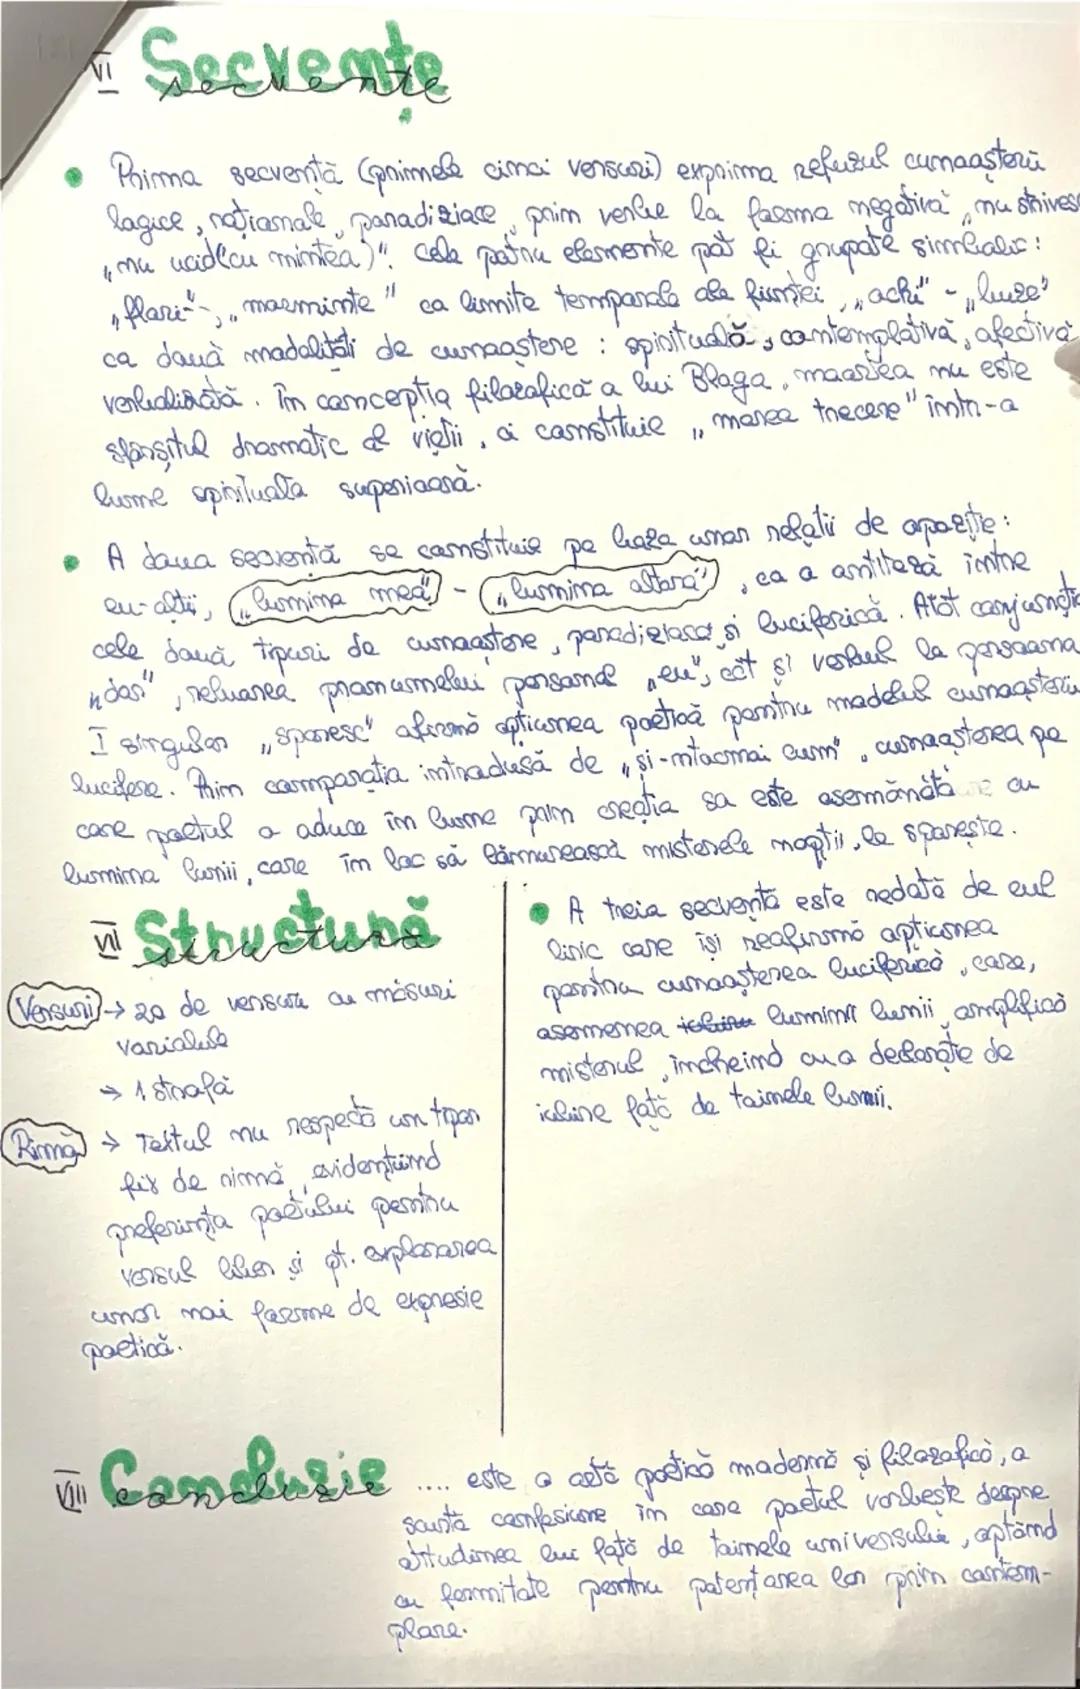 VI Secvențe
secvențe
Prima secvență (primele cinci versuri) exprima refuzul cunoașterii
logice, raționale, paradiziace, prin verbe la forma negativă „nu strivesc
„nu ucid(cu mintea)". Cele patru elemente pot fi grupate simbolic:
„flori"-, „morminte" ca limite temporale ale ființei, „ochi" - „buze"
ca două modalități de cunoaștere: spirituală, contemplativă, afectivă
verbalizată. În concepția filozofică a lui Blaga, moartea nu este
sfârșitul dramatic al vieții, ci constituie „marea trecere" într-o
lume spirituala superioară.
A doua secvență se constituie pe baza unor relații de opoziție:
eu-alții, „lumina mea" - „lumina altora", ca o antiteză între
cele două tipuri de cunoaștere, paradiziacă și luciferică. Atât conjuncția
„dar", reluarea pronumelui personal „eu", cât și verbul la persoana
I singular „sporesc" afirmă opțiunea poetică pentru modelul cunoașterii
lucifere. Prin comparația introdusă de „și-ntocmai cum", cunoașterea pe
care poetul o aduce în lume prin creația sa este asemănătă cu
lumina lunii, care în loc să lămurească misterele nopții, le sporește.
VII Structură
structura
Versuri → 20 de versuri cu măsuri
variabile
→ 1 strofă
Rimă → Textul nu respectă un tipar
fix de rimă, evidențiind
preferința poetului pentru
versul liber și pt. explorarea
unor noi forme de expresie
poetică.
A treia secvență este redată de eul
liric care își reafirmă opțiunea
pentru cunoașterea luciferică, care,
asemenea luminii lunii, amplifică
misterul, încheind cu o declarație de
iubire față de tainele lumii.
VIII Concluzie
concluzie
.... este o artă poetică modernă și filozofică, o
scurtă confesiune în care poetul vorbește despre
atitudinea lui față de tainele universului, optând
cu fermitate pentru potențarea lor prin contem-
plare.